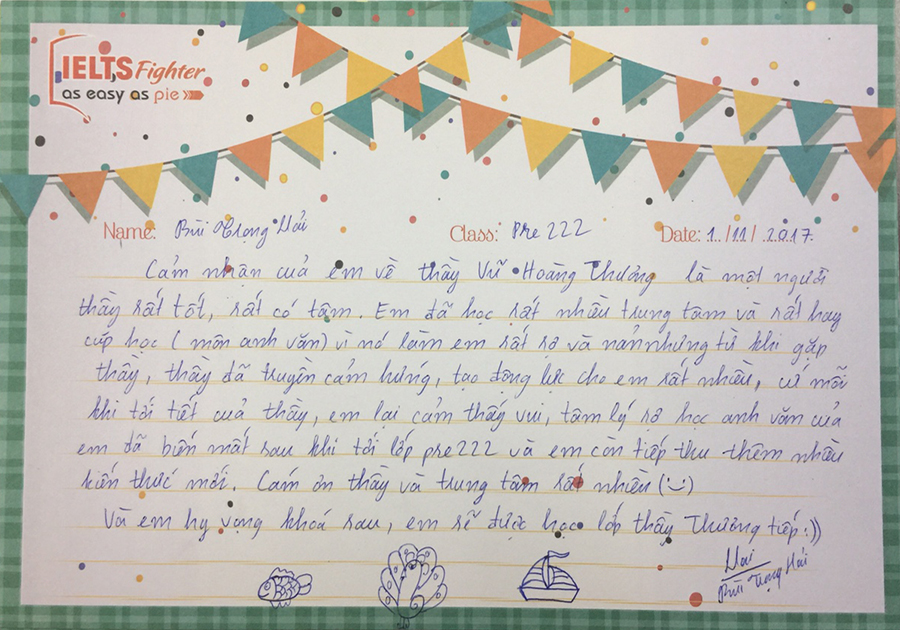 IELTS Fighter
as easy as pie
Name: Bùi Trọng Hải Class: Pre 222 Date: 1../11/..2017.
Cảm nhận của em về thầy Vũ Hoàng Thương là một người
thầy rất tốt, rất có tâm. Em đã học rất nhiều trung tâm và rất hay
cúp học (môn anh văn) vì nó làm em rất sợ và nản nhưng từ khi gặp
thầy, thầy đã truyền cảm hứng, tạo động lực cho em rất nhiều, cứ mỗi
khi tới tiết của thầy, em lại cảm thấy vui, tâm lý sợ học anh văn của
em đã biến mất sau khi tới lớp pre222 và em còn tiếp thu thêm nhiều
kiến thức mới. Cám ơn thầy và trung tâm rất nhiều (:-)
Và em hy vọng khoá sau, em sẽ được học lớp thầy Thương tiếp:))
Hai
Bùi Trọng Hải